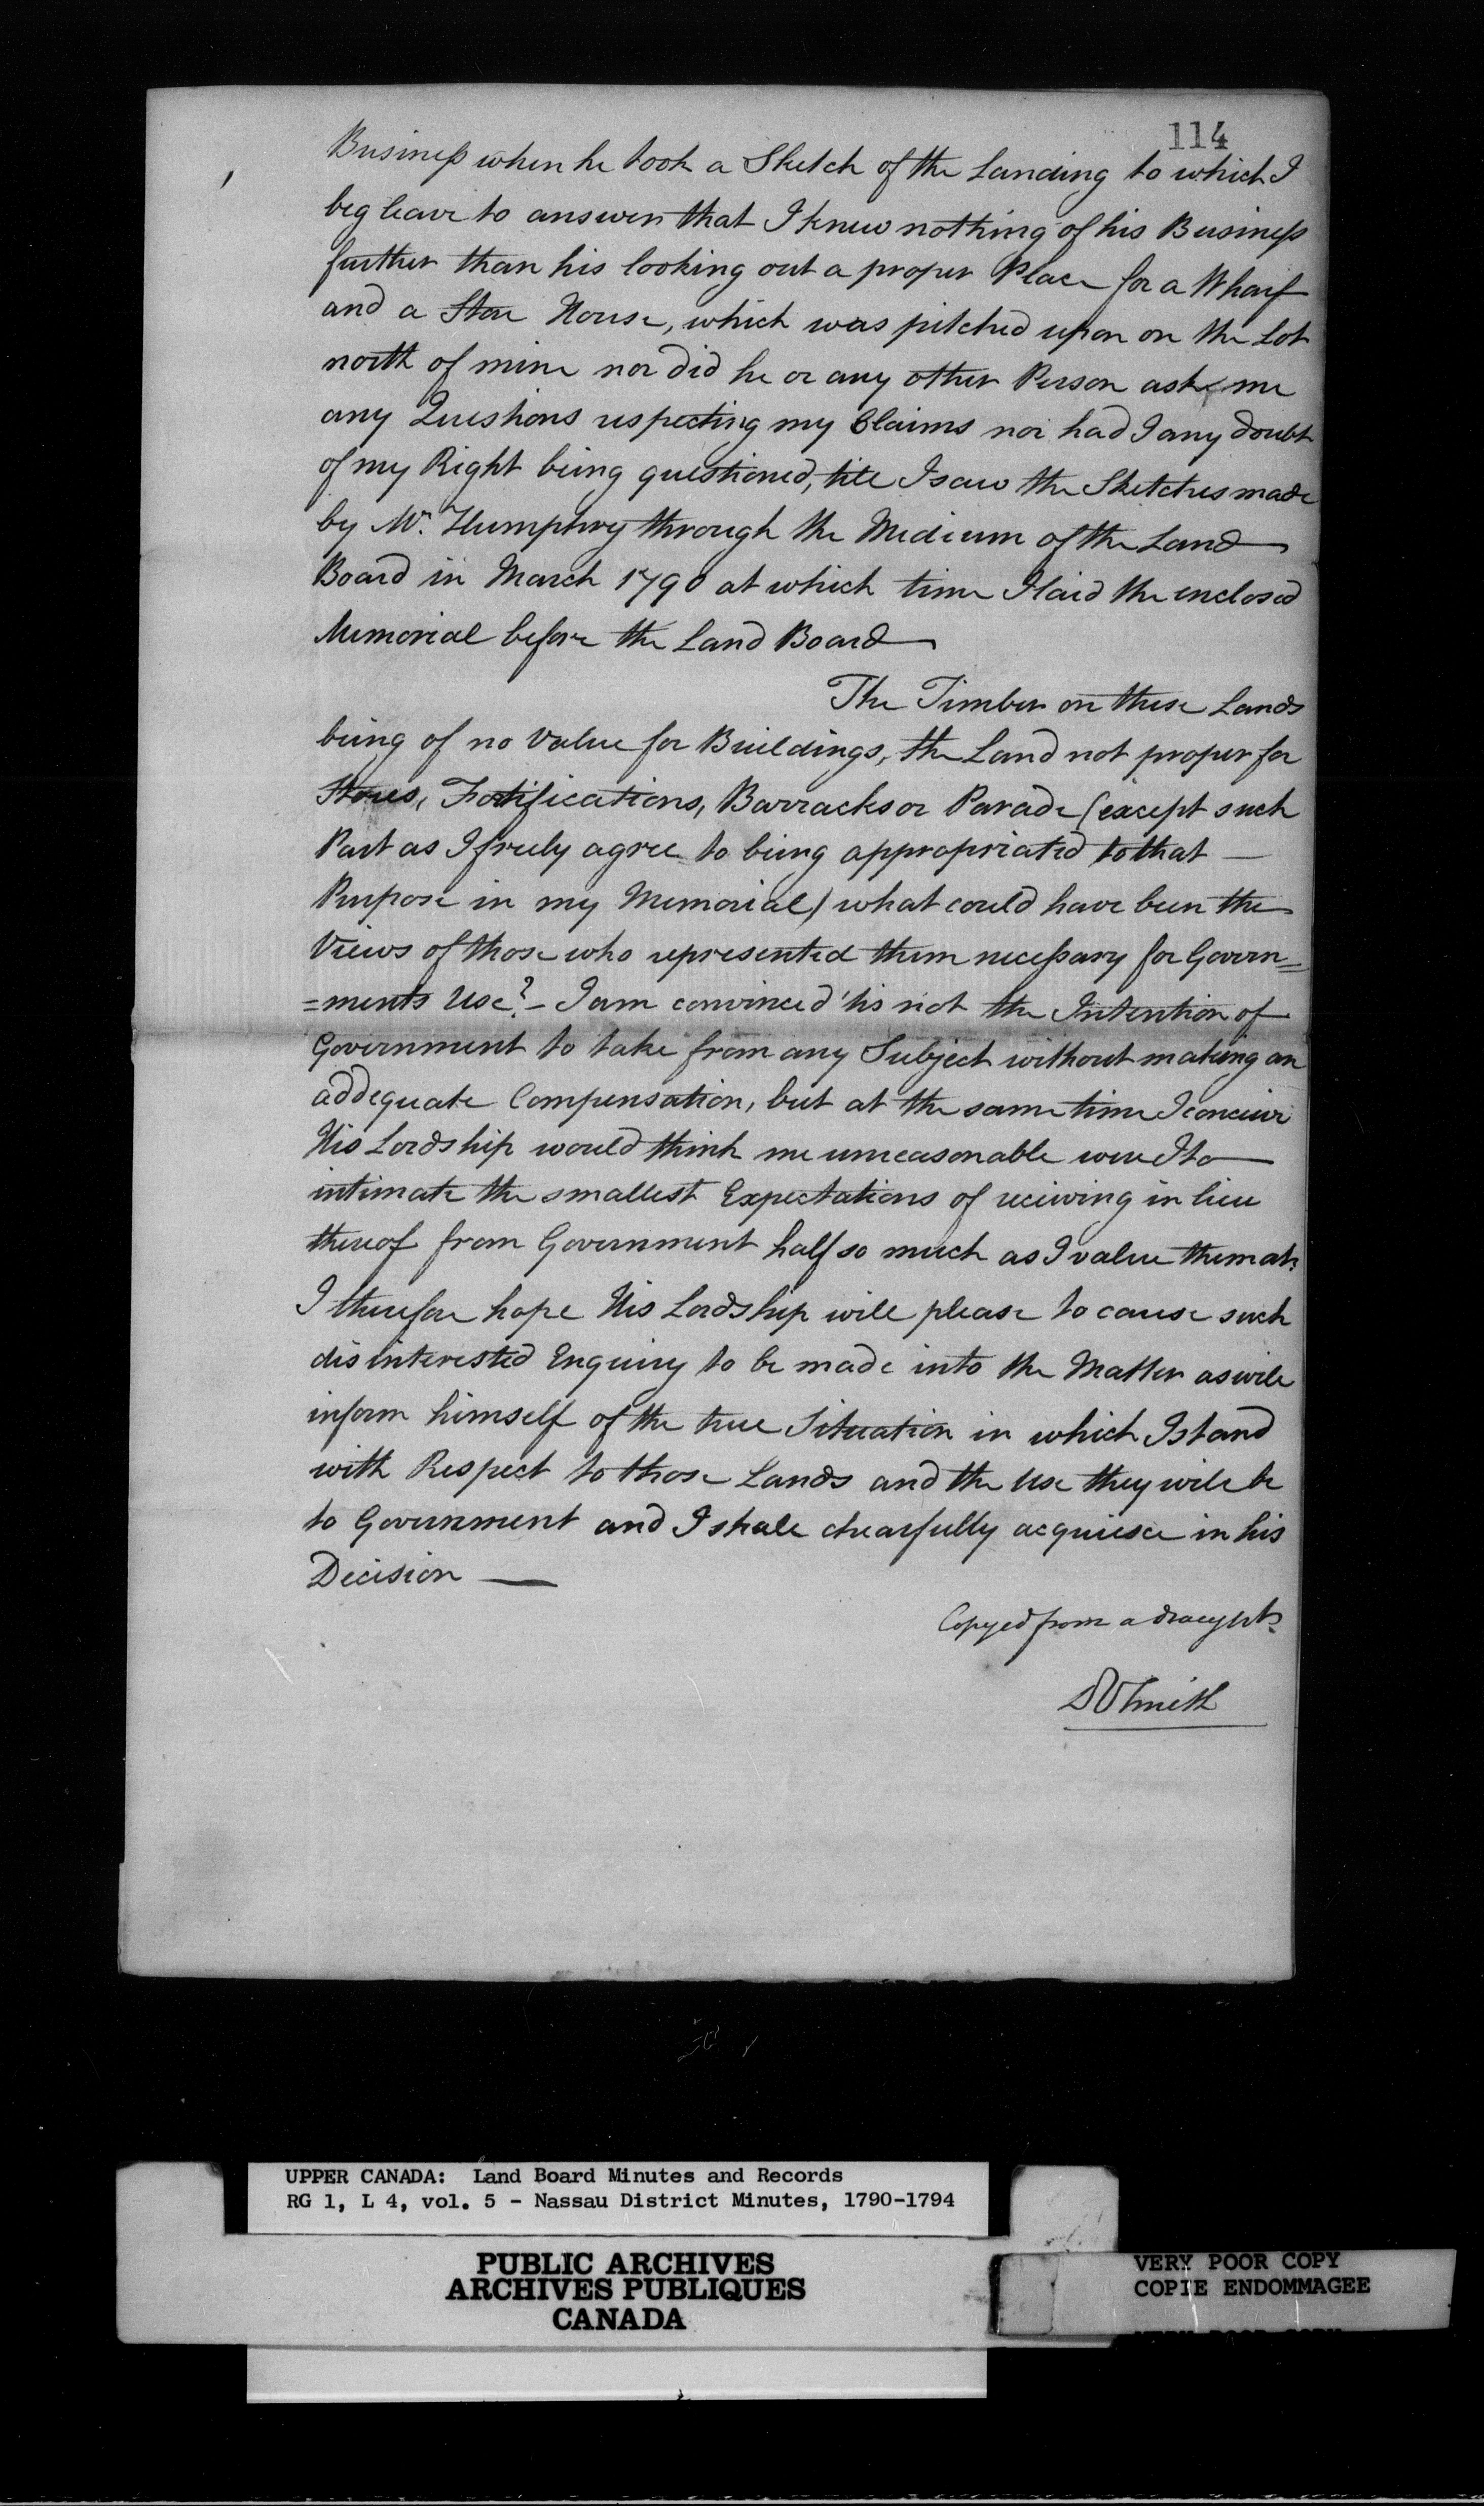 114
Business when he took a Sketch of the Landing to which I
beg leave to answer that I knew nothing of his Business
further than his looking out a proper Place for a Wharf
and a Store House, which was pitched upon on the Lot
north of mine nor did he or any other Person ask me
any Questions respecting my Claims nor had I any doubt
of my Right being questioned, till I saw the Sketches made
by Mr. Humphry through the Medium of the Land
Board in March 1790 at which time I laid the enclosed
Memorial before the Land Board
The Timber on these Lands
being of no Value for Buildings, the Land not proper for
Stores, Fortifications, Barracks or Parade (except such
Part as I freely agree to being appropriated to that —
Purpose in my Memorial) what could have been the
Views of those who represented them necessary for Govern=
=ments Use? – I am convinced 'tis not the Intention of
Government to take from any Subject without making an
addequate Compensation, but at the same time I conceive
His Lordship would think me unreasonable were I to
intimate the smallest Expectations of receiving in lieu
thereof from Government half so much as I value them at.
I therefore hope His Lordship will please to cause such
disinterested Enquiry to be made into the Matter as will
inform himself of the true Situation in which I stand
with Respect to those Lands and the Use they will be
to Government and I shall chearfully acquiesce in his
Decision —
Copyed from a draught
DW Smith
UPPER CANADA: Land Board Minutes and Records
RG 1, L 4, vol. 5 - Nassau District Minutes, 1790-1794
PUBLIC ARCHIVES
ARCHIVES PUBLIQUES
CANADA
VERY POOR COPY
COPIE ENDOMMAGEE